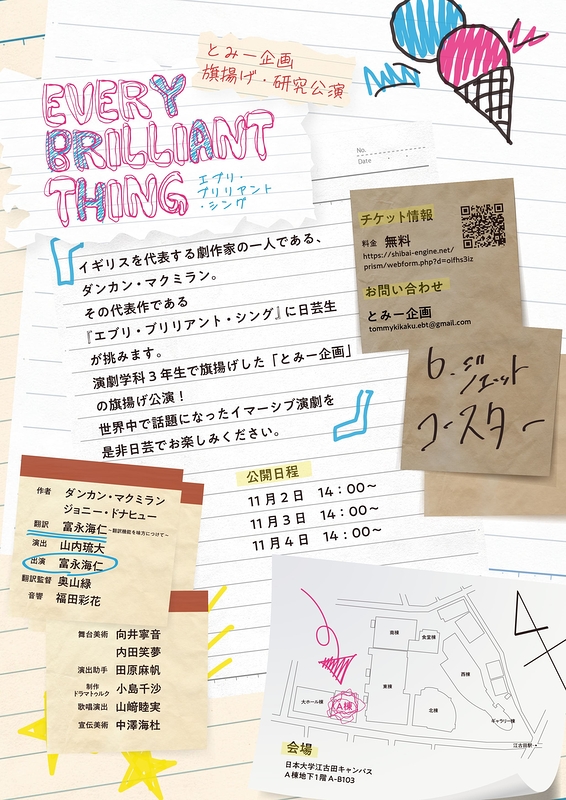 とみー企画
旗揚げ・研究公演
EVERY
BRILLIANT
THING
エブリ・
ブリリアント
・シング
No.
Date
イギリスを代表する劇作家の一人である、
ダンカン・マクミラン。
その代表作である
『エブリ・ブリリアント・シング』に日芸生
が挑みます。
演劇学科3年生で旗揚げした「とみー企画」
の旗揚げ公演！
世界中で話題になったイマーシブ演劇を
是非日芸でお楽しみください。
チケット情報
料金 無料
https://shibai-engine.net/
prism/webform.php?d=olfhs3iz
お問い合わせ
とみー企画
tommykikaku.ebt@gmail.com
6.ジェット
コースター
公開日程
11月2日 14：00～
11月3日 14：00～
11月4日 14：00～
作者 ダンカン・マクミラン
ジョニー・ドナヒュー
翻訳 富永海仁 ～翻訳機能を味方につけて～
演出 山内琉大
出演 富永海仁
翻訳監督 奥山緑
音響 福田彩花
舞台美術 向井寧音
内田笑夢
演出助手 田原麻帆
制作
ドラマトゥルク 小島千沙
歌唱演出 山﨑睦実
宣伝美術 中澤海杜
南棟
食堂棟
西棟
東棟
北棟
大ホール棟
A棟
ギャラリー棟
江古田駅→
会場
日本大学江古田キャンパス
A棟地下1階A-B103